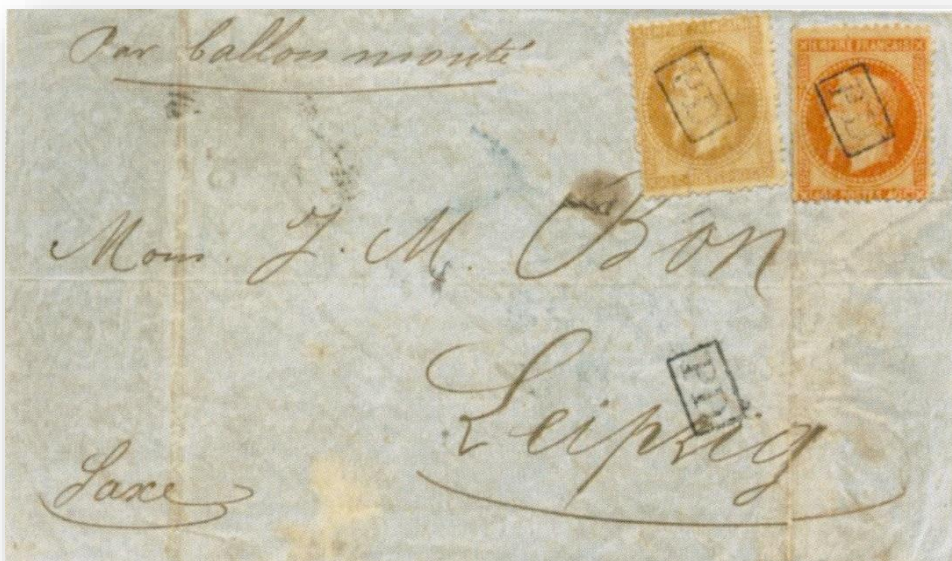 Par ballon monté
EMPIRE FRANÇAIS
PD
PD
Mons. J. M. Bon
PD
Leipzig
Saxe